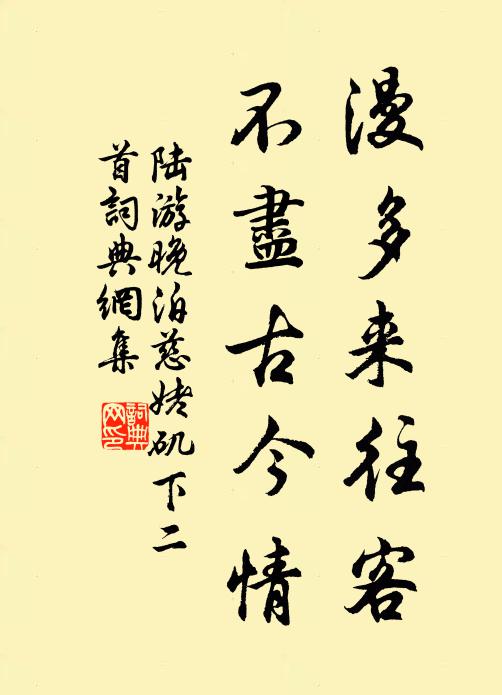 漫多来往客
不盡古今情
陆游晚泊慈姥矶下二
首詞典網集
詞典
网印